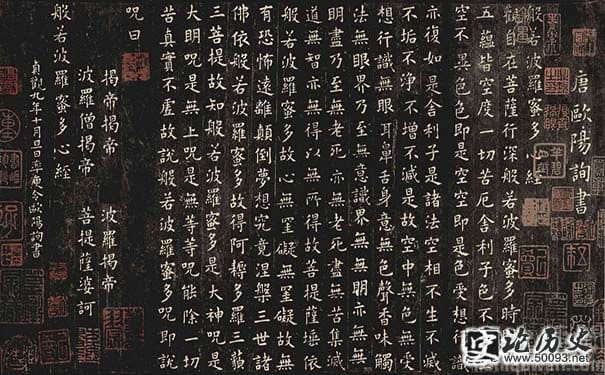 唐歐陽詢書
般若波羅蜜多心經
觀自在菩薩行深般若波羅蜜多時
五蘊皆空度一切苦厄舍利子色不
空不異色色即是空空即是色受想行識
亦復如是舍利子是諸法空相不生不滅
不垢不淨不增不減是故空中無色無受
想行識無眼耳鼻舌身意無色聲香味觸
法無眼界乃至無意識界無無明亦無無
明盡乃至無老死亦無老死盡無苦集滅
道無智亦無得以無所得故菩提薩埵依
般若波羅蜜多故心無罣礙無罣礙故無
有恐怖遠離顛倒夢想究竟涅槃三世諸
佛依般若波羅蜜多故得阿耨多羅三藐
三菩提故知般若波羅蜜多是大神呪是
大明呪是無上呪是無等等呪能除一切
苦真實不虛故說般若波羅蜜多呪即說
呪曰
揭帝揭帝 波羅揭帝
波羅僧揭帝 菩提薩婆訶
般若波羅蜜多心經
貞觀九年十月旦日率更令歐陽詢書
论历史
www.50093.net